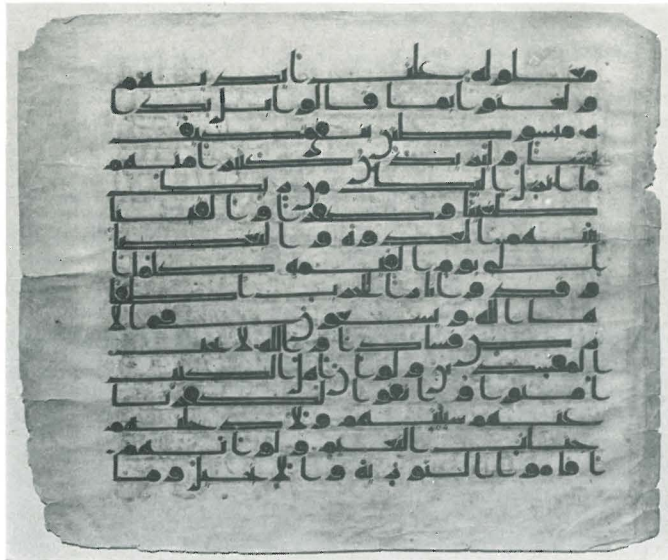 مغلوله غلت ايديهم
ولعنوا بما قالوا بل يدا
ه مبسوطتن ينفق كيف
يشا وليزيدن كثيرا منهم
ما انزل اليك من ربك
طغينا وكفرا والقينا
بينهم العدوة والبغضا
الى يوم القيمه كلما ا
وقدوا نارا للحرب اطفا
ها الله ويسعون في الا
رض فسادا والله لا يحب
المفسدين ولو ان اهل الكتب
امنوا واتقوا لكفرنا
عنهم سيتهم ولادخلنهم
جنت النعيم ولو انهم
اقاموا التورية والانجيل وما